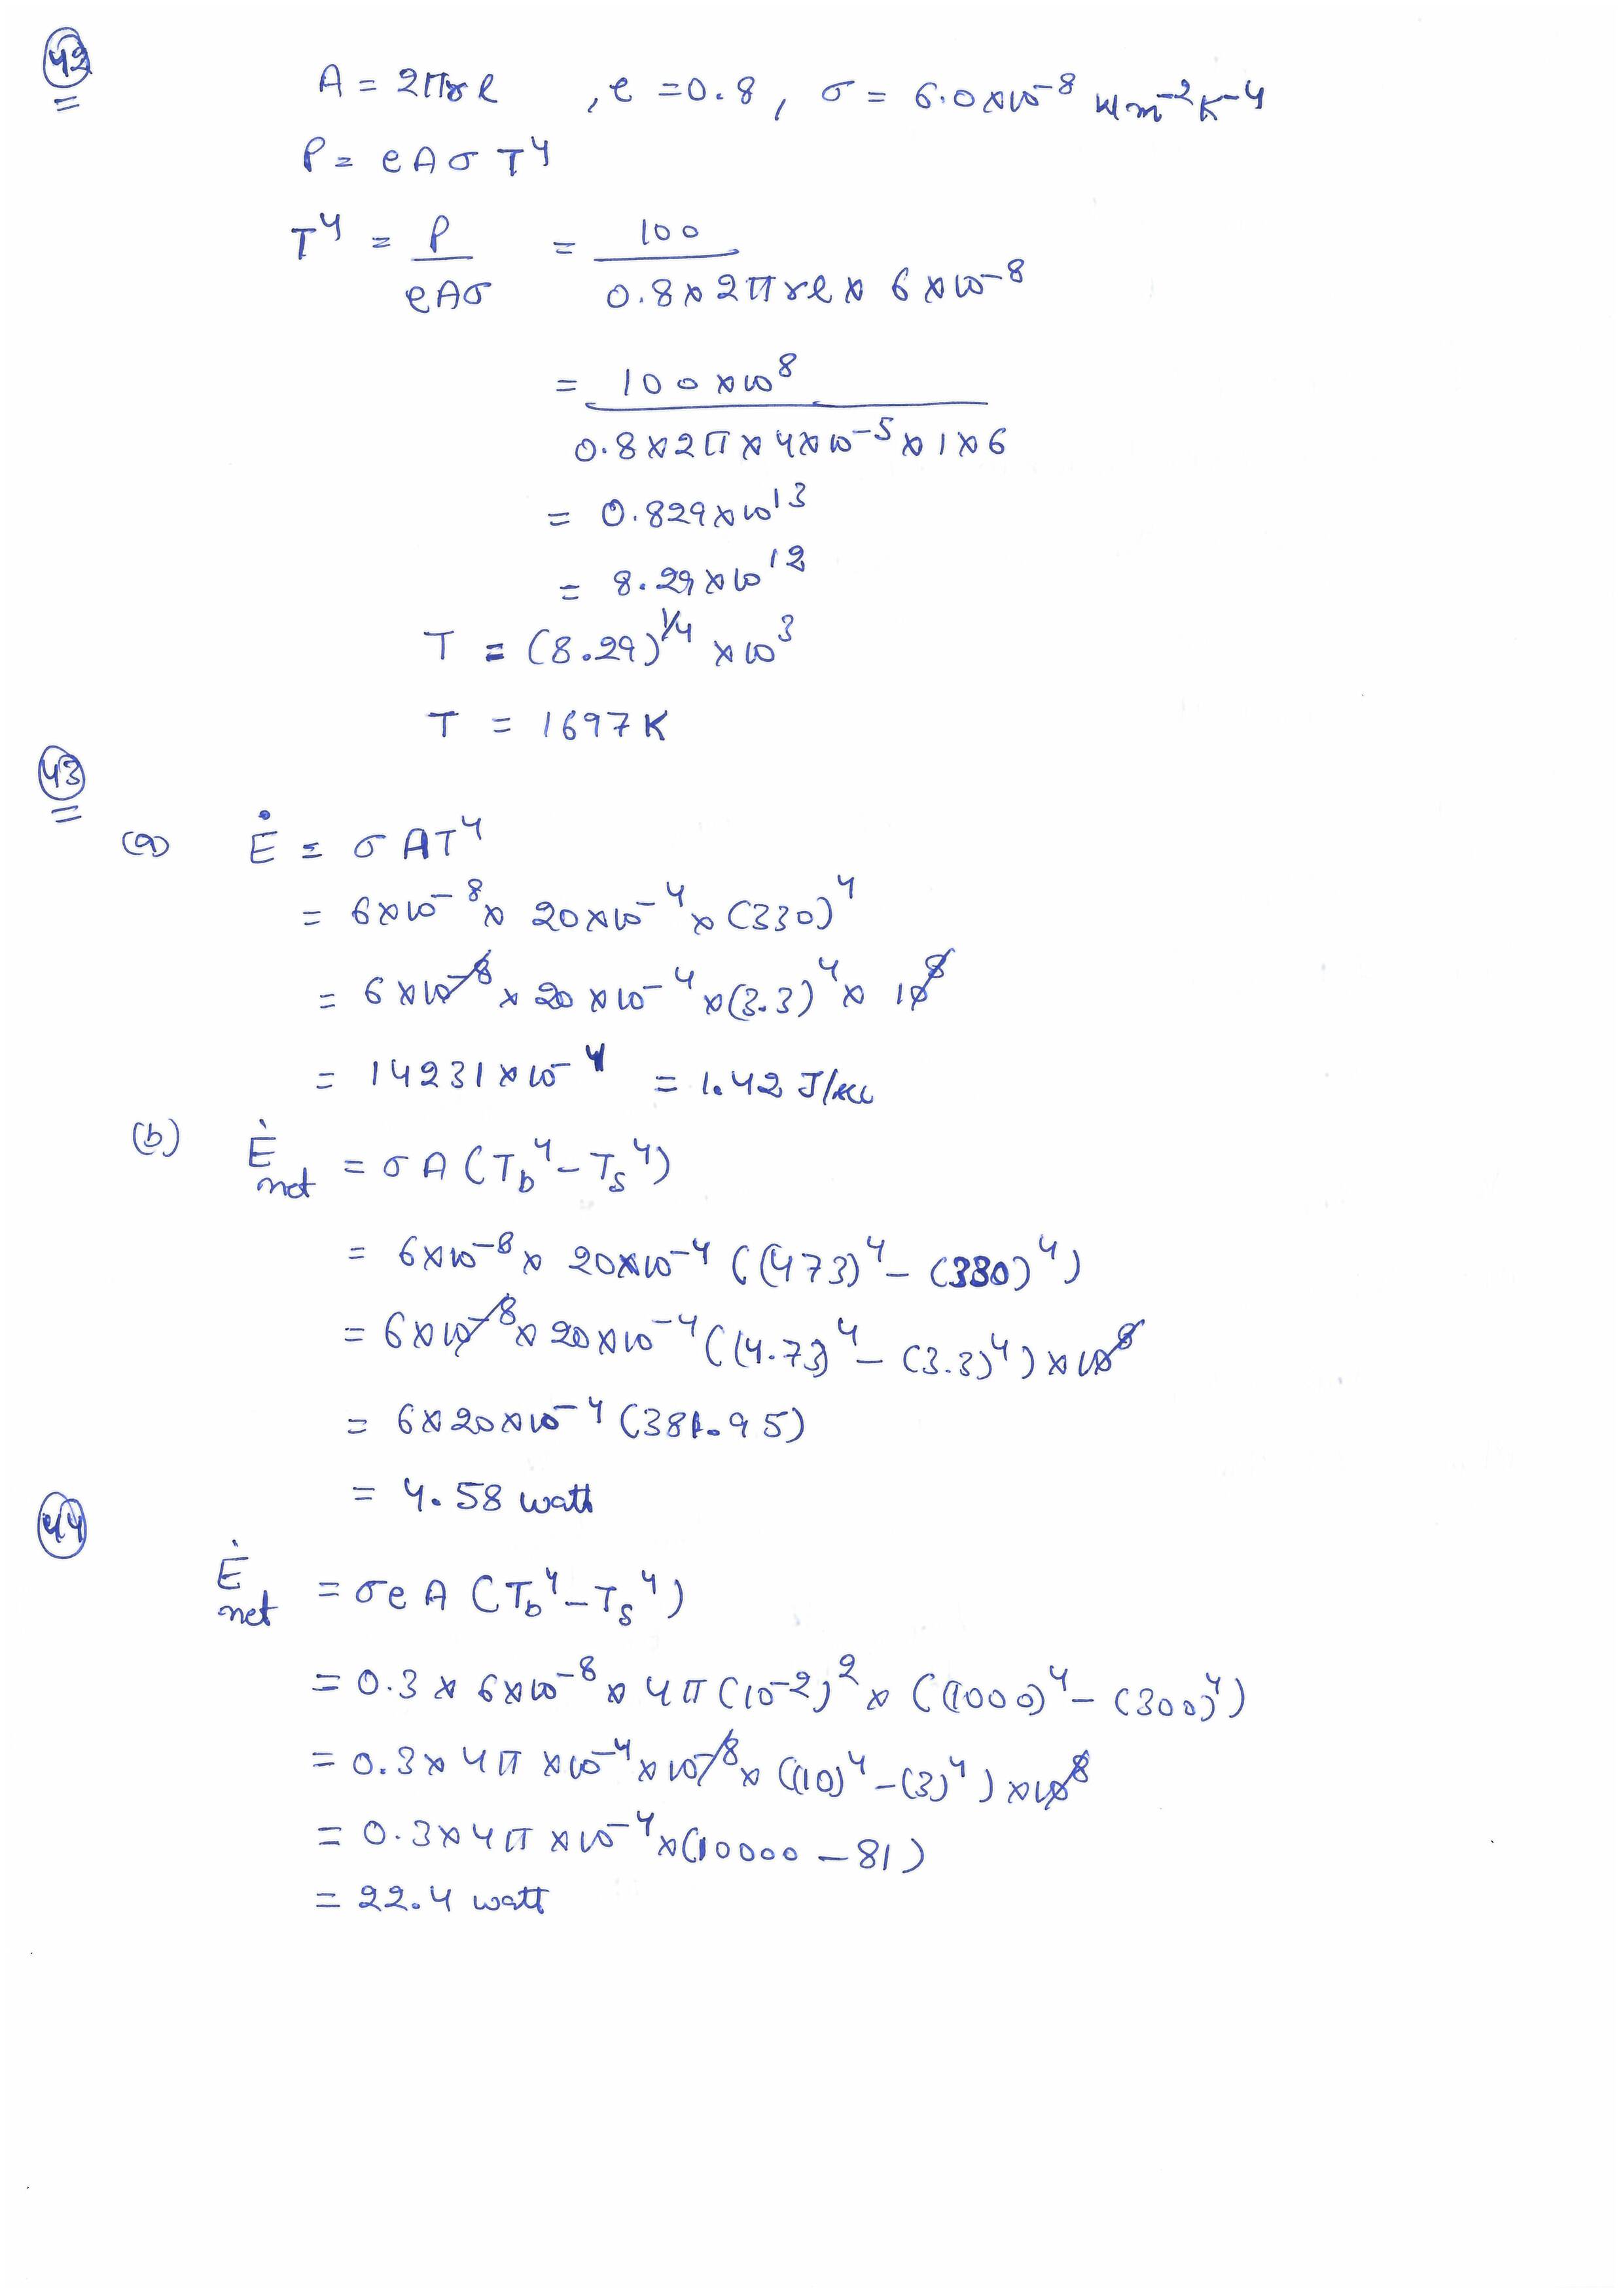 42
A = 2πrl , e = 0.8, σ = 6.0×10⁻⁸ Wm⁻²K⁻⁴
P = eAσT⁴
T⁴ = P/eAσ = 100/0.8×2πrl×6×10⁻⁸
= 100×10⁸/0.8×2π×4×10⁻⁵×1×6
= 0.829×10¹³
= 8.29×10¹²
T = (8.29)^¼ ×10³
T = 1697K
43
(a) Ė = σAT⁴
= 6×10⁻⁸× 20×10⁻⁴×(330)⁴
= 6×10⁻⁸ × 20×10⁻⁴×(3.3)⁴× 10⁸
= 14231×10⁻⁴ = 1.42 J/sec
(b) Ė net = σA(T_b⁴–T_s⁴)
= 6×10⁻⁸× 20×10⁻⁴((473)⁴–(330)⁴)
= 6×10⁻⁸×20×10⁻⁴((4.73)⁴–(3.3)⁴)×10⁸
= 6×20×10⁻⁴(381.95)
= 4.58 watt
44
Ė net = σeA(T_b⁴–T_s⁴)
= 0.3×6×10⁻⁸×4π(10⁻²)²×((1000)⁴–(300)⁴)
= 0.3×4π×10⁻⁴×10⁻⁸×((10)⁴–(3)⁴)×10⁸
= 0.3×4π×10⁻⁴×(10000–81)
= 22.4 watt